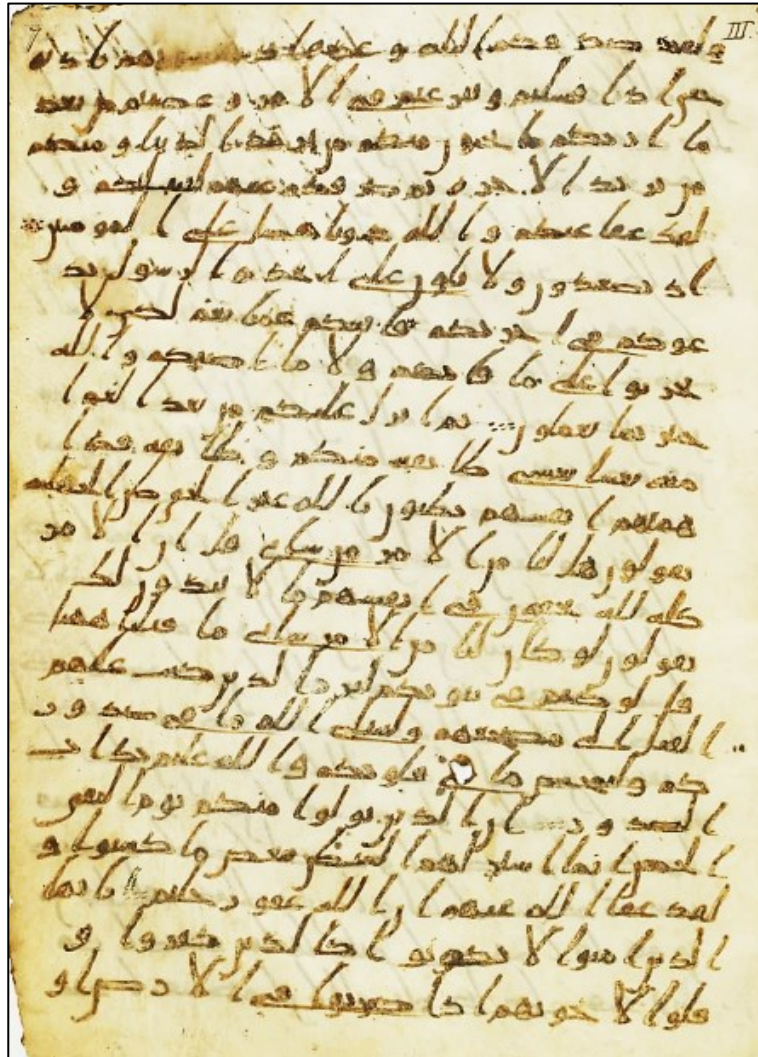 7 III.
ولقد صدقكم الله وعده اذ تحسونهم باذنه
حتى اذا فشلتم وتنزعتم في الامر وعصيتم من بعد
ما اريكم ما تحبون منكم من يريد الدنيا ومنكم
من يريد الاخره ثم صرفكم عنهم ليبتليكم و
لقد عفا عنكم والله ذو فضل على المومنين
اذ تصعدون ولا تلون على احد والرسول يد
عوكم في اخريكم فاثبكم غما بغم لكيلا
تحزنوا على ما فاتكم ولا ما اصبكم والله
خبير بما تعملون ثم انزل عليكم من بعد الغم ا
منه نعاسا يغشى طايفه منكم وطايفه قد ا
همتهم انفسهم يظنون بالله غير الحق ظن الجهليه
يقولون هل لنا من الامر من شاي قل ان الامر
كله لله يخفون في انفسهم ما لا يبدون لك
يقولون لو كان لنا من الامر شاي ما قتلنا ههنا
قل لو كنتم في بيوتكم لبرز الذين كتب عليهم
القتل الى مضجعهم وليبتلي الله ما في صدور
كم وليمحص ما في قلوبكم والله عليم بذات
الصدور ان الذين تولوا منكم يوم التقى
الجمعن انما استزلهم الشيطن ببعض ما كسبوا و
لقد عفا الله عنهم ان الله غفور حليم يايها
الذين امنوا لا تكونوا كالذين كفروا و
قلوا لاخونهم اذا ضربوا في الارض او